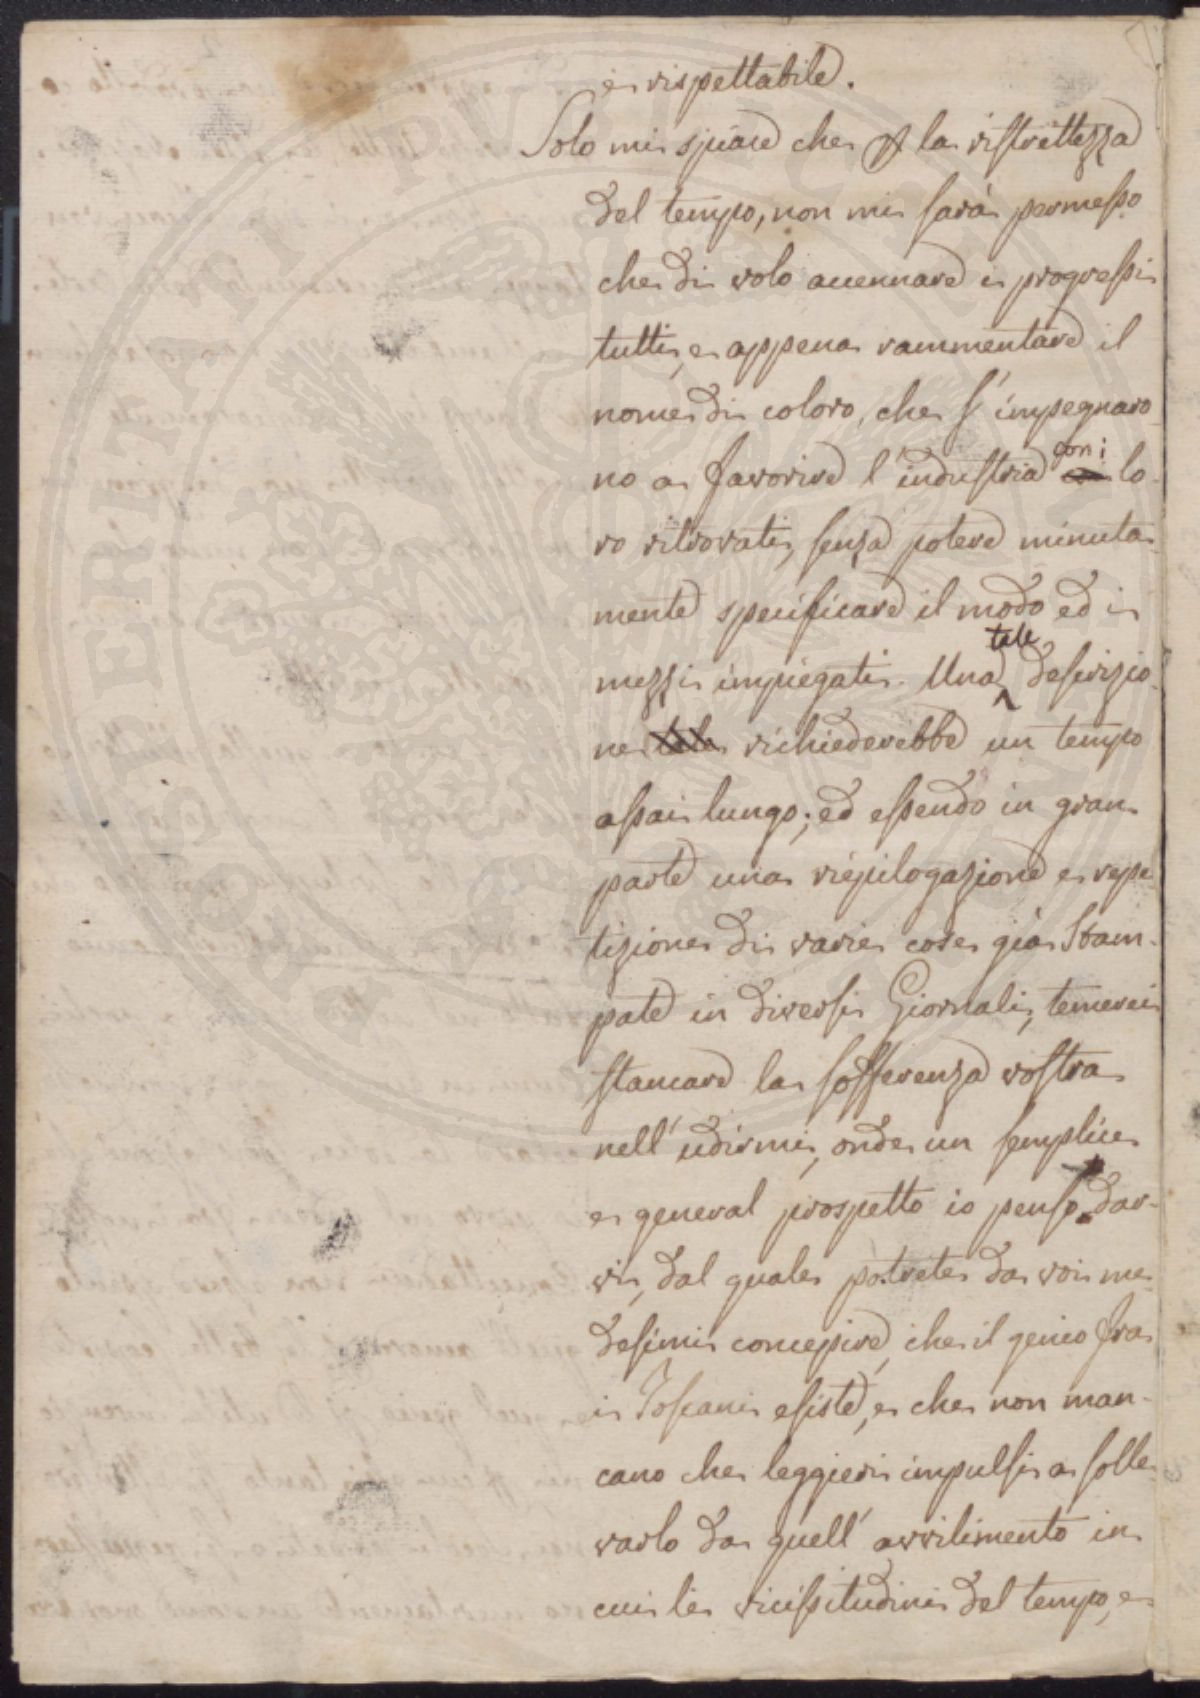 e rispettabile.
Solo mi spiace che p la ristrettezza
del tempo, non mi sarà permesso
che di volo accennare i progressi
tutti, e appena rammentare il
nome di coloro, che s'impegnaro
no a favorire l'industria con i lo
ro ritrovati, senza potere minuta
mente specificare il modo ed i
mezzi impiegati. Una tale descrizio
ne tale richiederebbe un tempo
assai lungo; ed essendo in gran
parte una riepilogazione e repe
tizione di varie cose già Stam-
pate in diversi Giornali, temerei
stancare la sofferenza vostra
nell'udirmi, onde un semplice
e general prospetto io penso dar-
vi, dal quale potrete da voi me
desimi concepire, che il genio fra
i Toscani esiste, e che non man-
cano che leggieri impulsi a solle
varlo da quell'avvilimento in
cui le vicissitudini del tempo, e
PROSPERITATI PVBLICAE